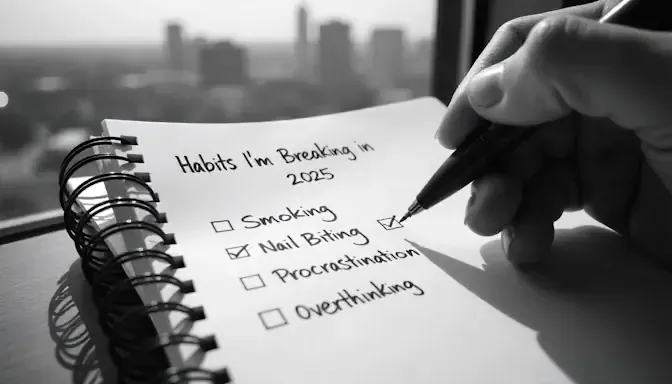 Habits I'm Breaking in
2025
Smoking
Nail Biting
Procrastination
Overthinking